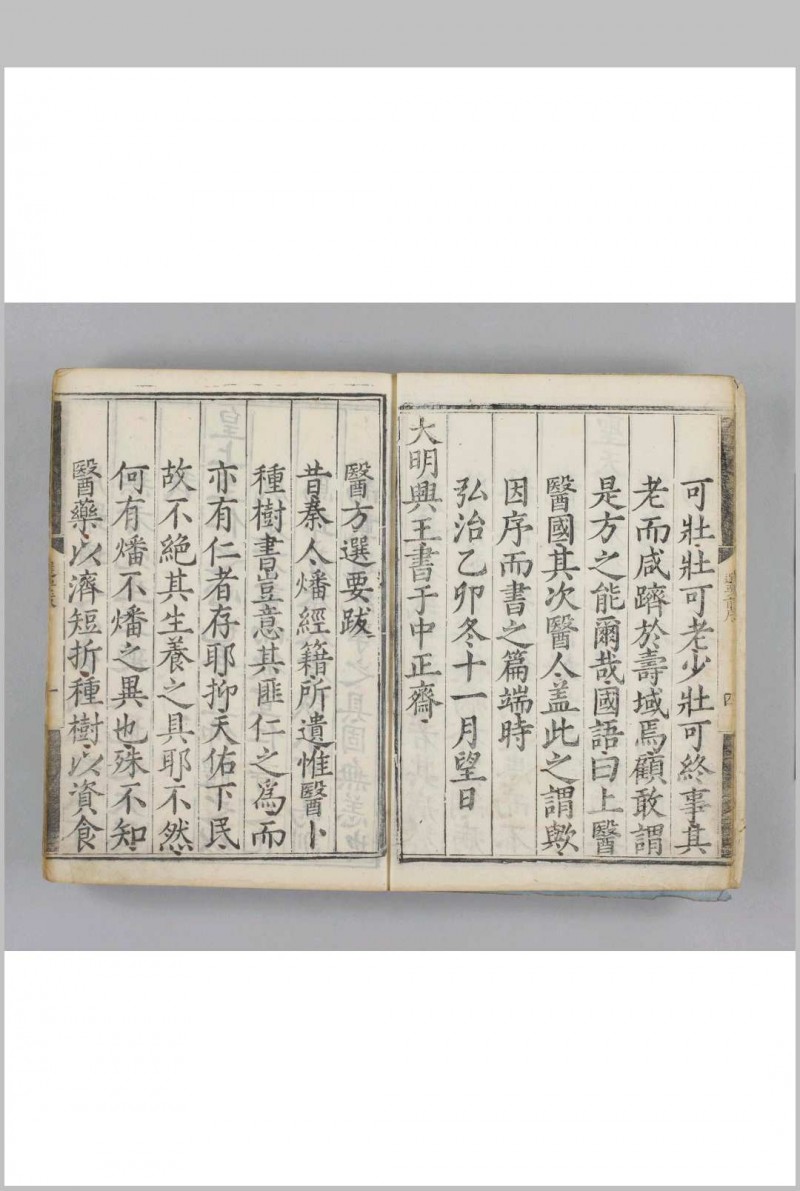 可壯壯可老少壯可終事其
老而咸躋於壽域焉顧敢謂
是方之能爾哉國語曰上醫
醫國其次醫人盖此之謂歟
因序而書之篇端時
弘治乙卯冬十一月望日
大明興王書于中正齋
醫方選要跋
昔秦人燔經籍所遺惟醫卜
種樹書豈意其匪仁之爲而
亦有仁者存耶抑天佑下民
故不絕其生養之具耶不然
何有燔不燔之異也殊不知
醫藥以濟短折種樹以資食